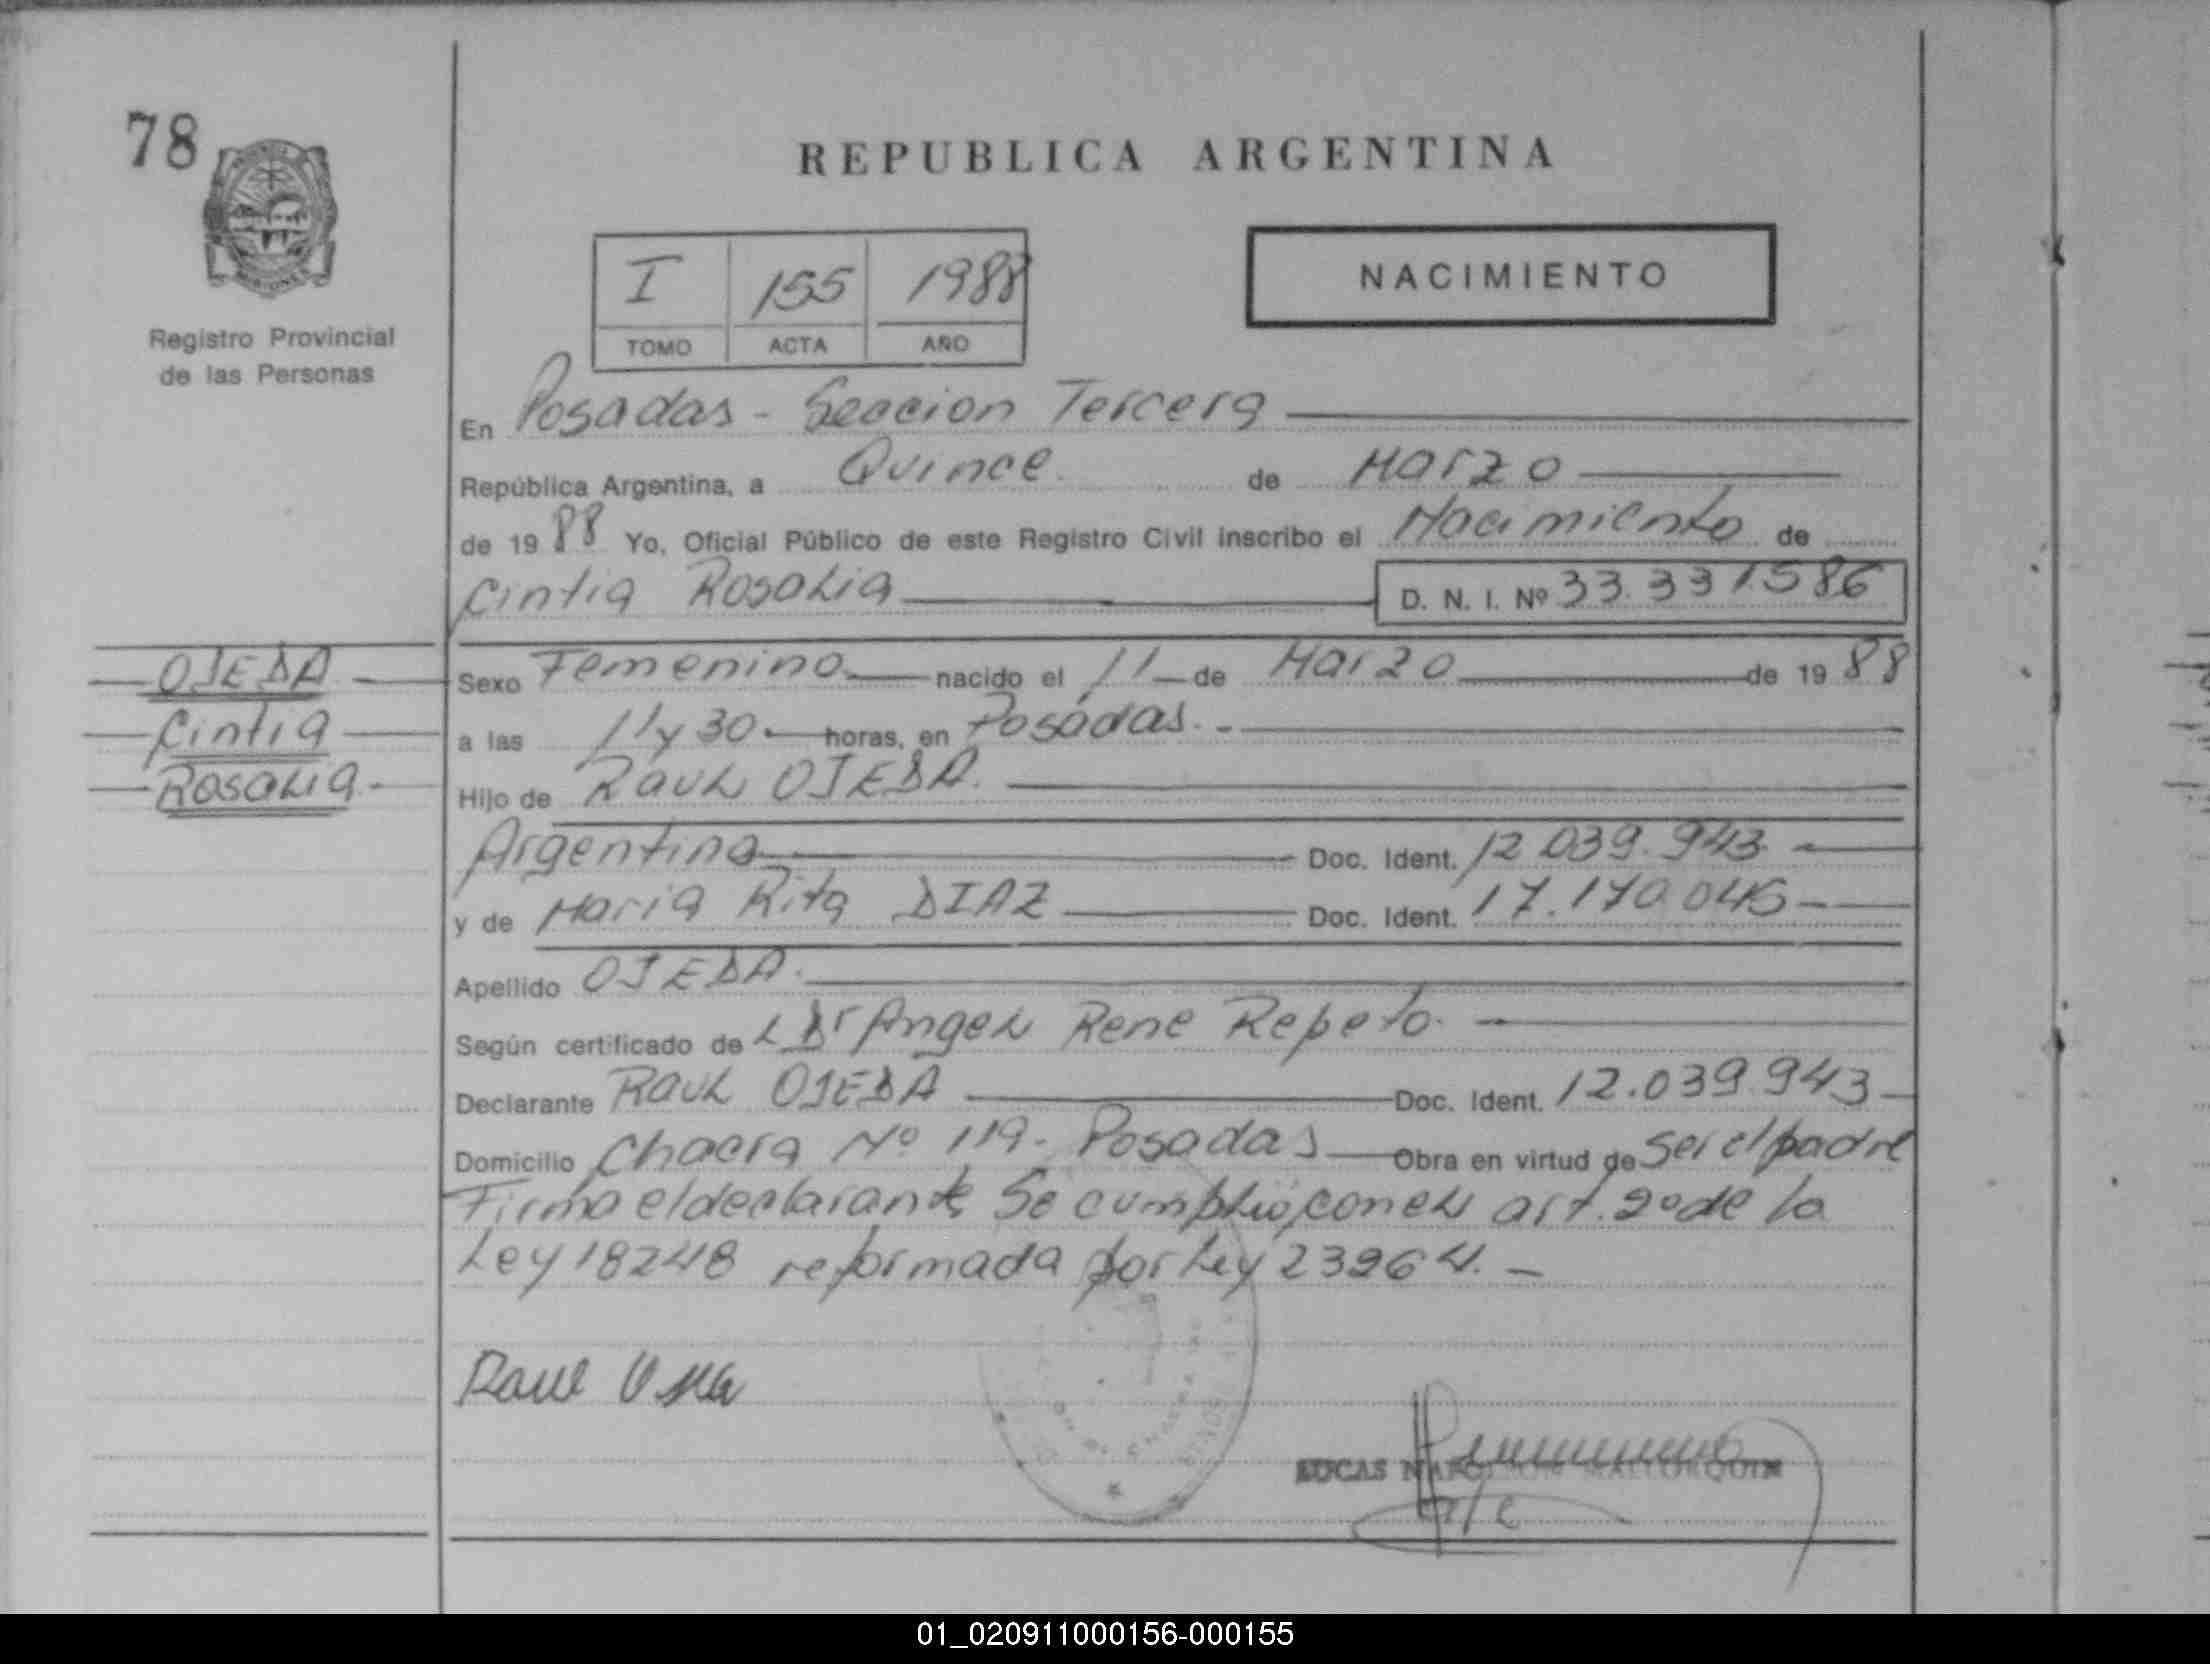 78
REPUBLICA ARGENTINA
I 155 1988
TOMO ACTA AÑO
NACIMIENTO
Registro Provincial
de las Personas
En Posadas - Seccion Tercera
República Argentina, a Quince de Marzo
de 1988 Yo, Oficial Público de este Registro Civil inscribo el Nacimiento de
Cintia Rosalia D. N. I. Nº 33.331.586
OJEDA
Cintia
Rosalia.
Sexo Femenino nacido el 11 de Marzo de 1988
a las 11 y 30. horas, en Posadas. -
Hijo de Raul OJEDA.
Argentina Doc. Ident. 12.039.943
y de Maria Rita DIAZ Doc. Ident. 17.170.045
Apellido OJEDA.
Según certificado de L Dr Angel Rene Repeto.
Declarante Raul OJEDA Doc. Ident. 12.039.943
Domicilio Chacra Nº 119. Posadas Obra en virtud de Ser el padre
Firma el declarante Se cumplio con el art. 2º de la
Ley 18248 reformada por Ley 23264. -
Raul
LUCAS NAPOLEON MALLORQUIN
a/c
01_020911000156-000155